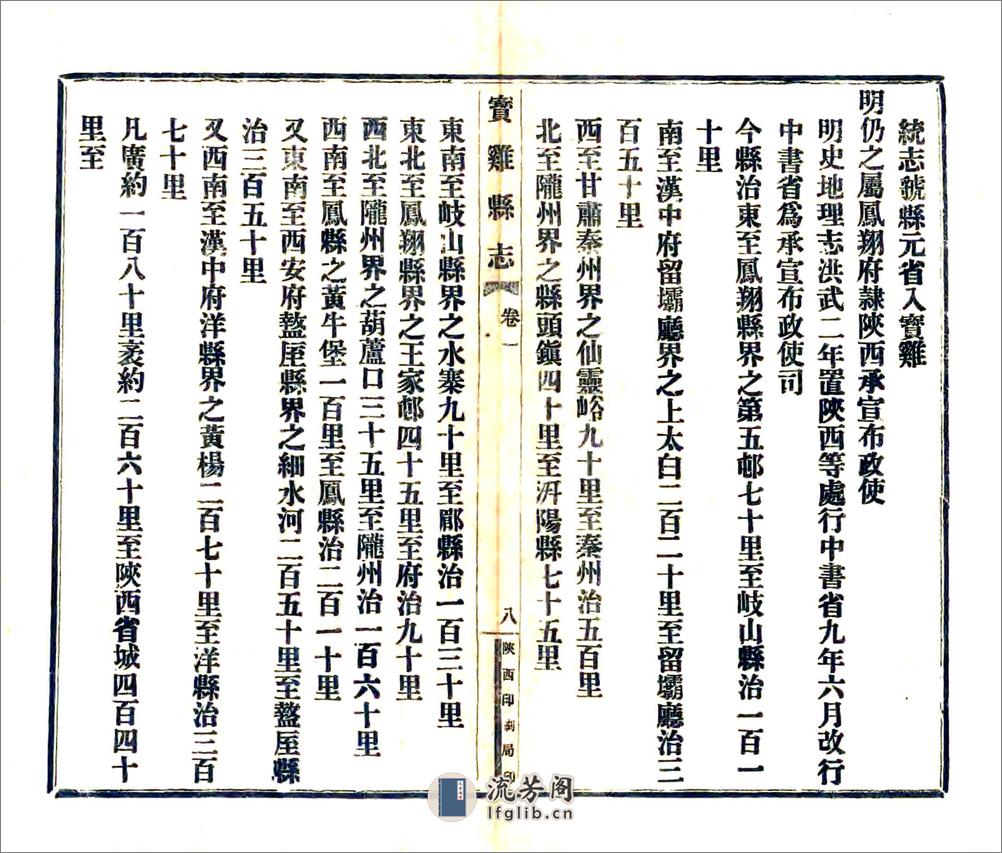 統志虢縣元省入寶雞
明仍之屬鳳翔府隷陝西承宣布政使
明史地理志洪武二年置陝西等處行中書省九年六月改行
中書省爲承宣布政使司
今縣治東至鳳翔縣界之第五邨七十里至岐山縣治一百一
十里
南至漢中府留壩廳界之上太白二百二十里至留壩廳治三
百五十里
西至甘肅秦州界之仙靈峪九十里至秦州治五百里
北至隴州界之縣頭鎭四十里至汧陽縣七十五里
寶雞縣志
卷一
八
陝西印刷局印
東南至岐山縣界之水寨九十里至郿縣治一百三十里
東北至鳳翔縣界之王家邨四十五里至府治九十里
西北至隴州界之葫蘆口三十五里至隴州治一百六十里
西南至鳳縣之黃牛堡一百里至鳳縣治二百一十里
又東南至西安府盩厔縣界之細水河二百五十里至盩厔縣
治三百五十里
又西南至漢中府洋縣界之黃楊二百七十里至洋縣治三百
七十里
凡廣約一百八十里袤約二百六十里至陝西省城四百四十
里至
流芳阁
lfglib.cn